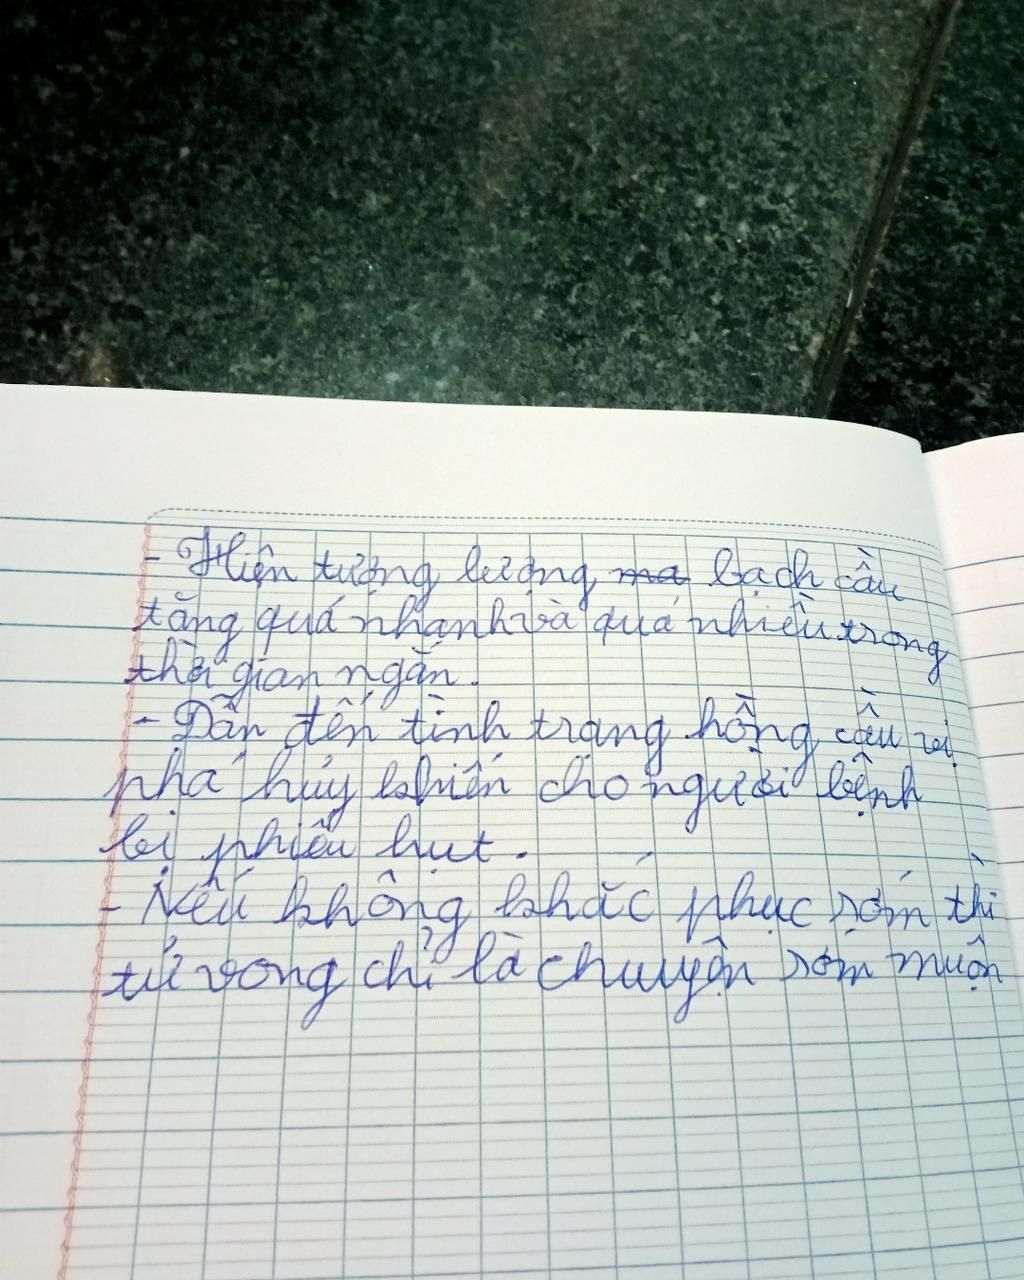 - Hiện tượng lượng ma bạch cầu
tăng quá nhanh và quá nhiều trong
thời gian ngắn.
- Dẫn đến tình trạng hồng cầu
phá hủy khiến cho người bệnh
bị phiếu hụt.
- Nếu không khắc phục sớm thì
tử vong chỉ là chuyện sớm muộn